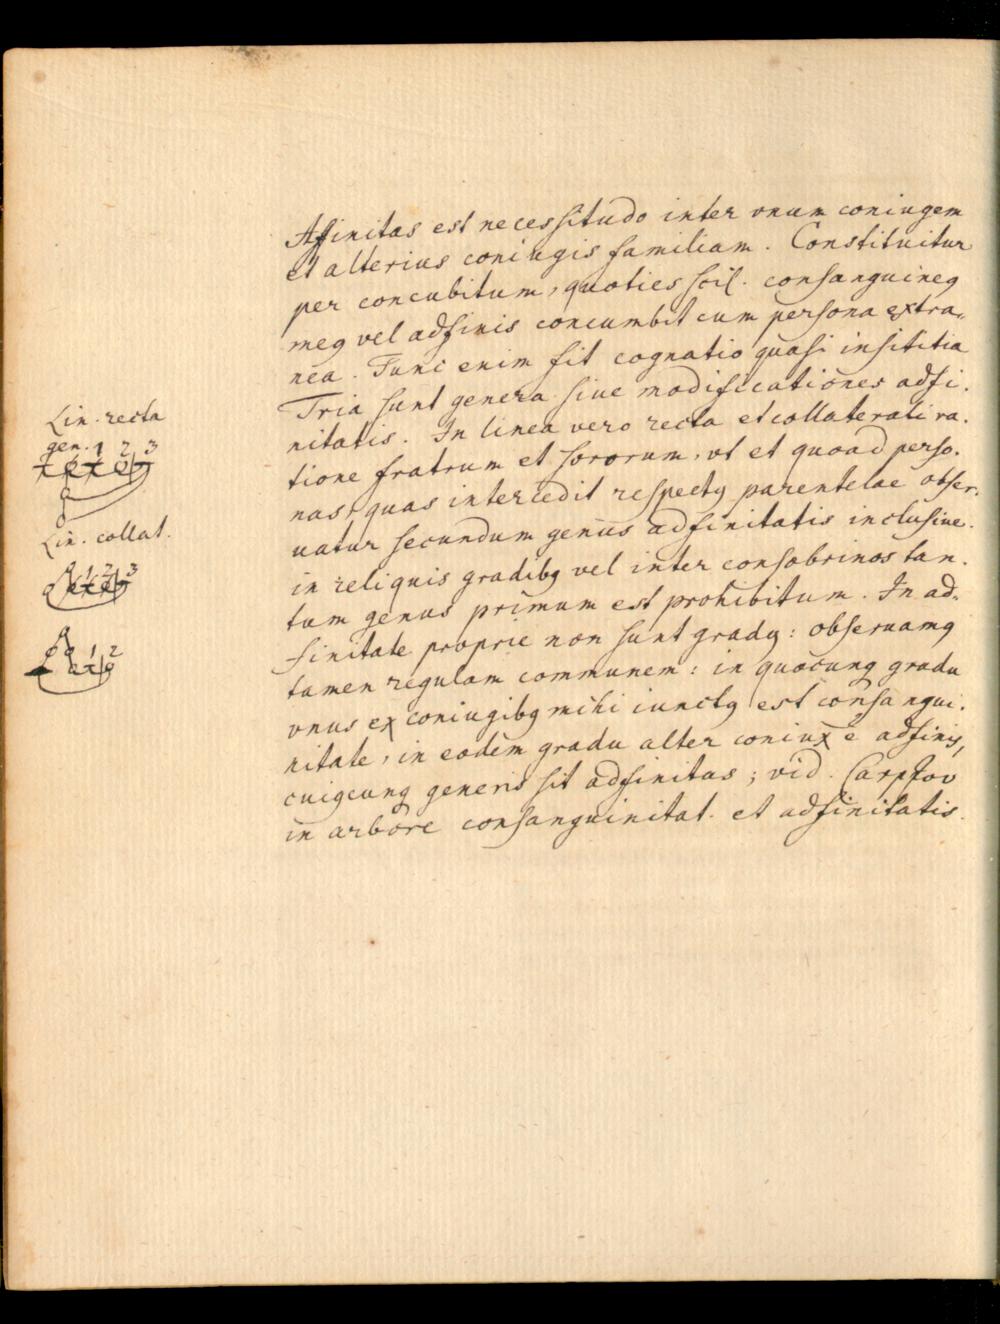 Affinitas est necessitudo inter vnum coniugem
et alterius coniugis familiam. Constituitur
per concubitum, quoties scil. consanguineq
meq vel adfinis concumbit cum persona extra-
nea. Tunc enim fit cognatio quasi insititia
Tria sunt genera siue modificationes adfi-
nitatis. In linea vero recta et collaterali ra-
tione fratrum et sororum, vt et quoad perso-
nas, quas intercedit respectq parentelae obser-
uatur secundum genus adfinitatis inclusiue.
in reliquis gradibq vel inter consobrinos tan-
tum genus primum est prohibitum. In ad-
finitate proprie non sunt gradq: obseruamq
tamen regulam communem: in quocunq gradu
vnus ex coniugibq mihi iunctq est consangui-
nitate, in eodem gradu alter coniux e adfinis,
cuiqcunq generis sit adfinitas; vid. Carpzov
in arbore consanguinitat. et adfinitatis.
Lin. recta
gen. 1 2 3
Lin. collat.
1 2 3
1 2